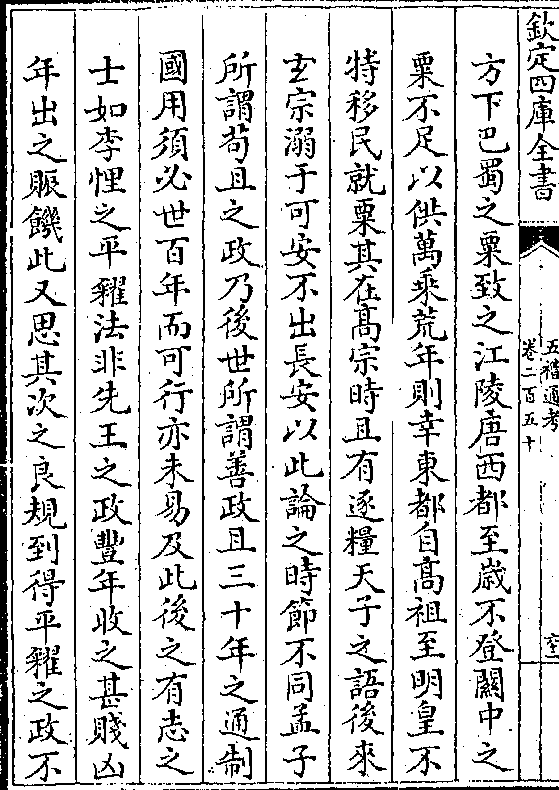 欽定四庫全書
五禮通考
卷二百五十
方下巴蜀之粟致之江陵唐西都至歲不登關中之
粟不足以供萬乘荒年則幸東都自髙祖至明皇不
特移民就粟其在髙宗時且有逐糧天子之語後來
玄宗溺于可安不出長安以此論之時節不同孟子
所謂苟且之政乃後世所謂善政且三十年之通制
國用須必世百年而可行亦未易及此後之有志之
士如李悝之平糴法非先王之政豐年收之甚賤凶
年出之賑饑此又思其次之良規到得平糴之政不